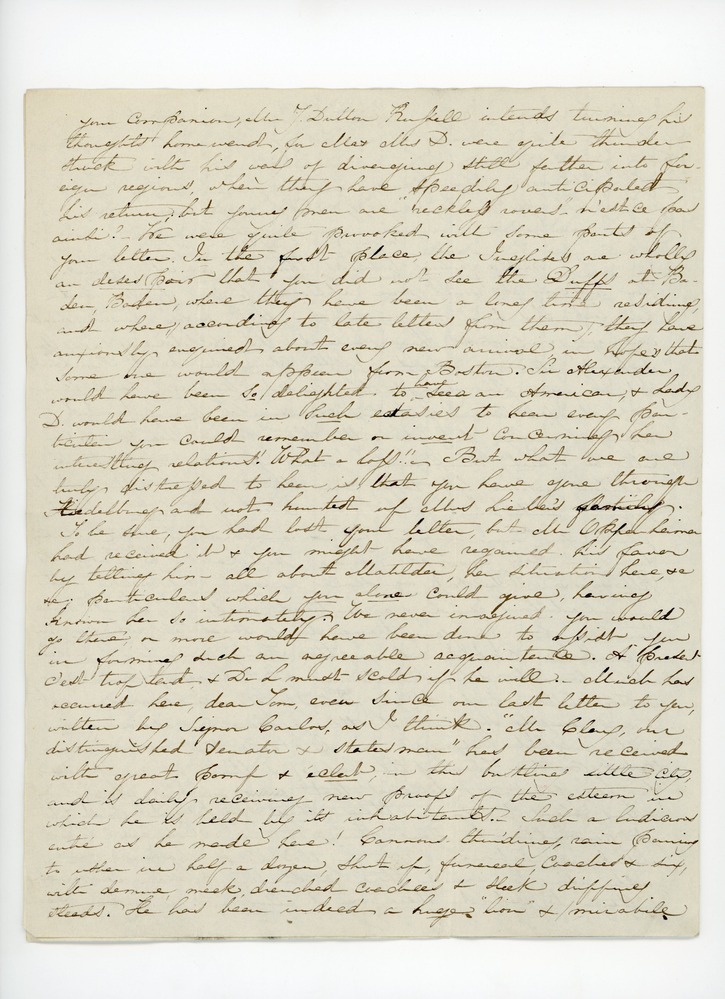 your Companion, Mr J. Dutton Russell intends turning his
thoughts homeward, for Mr & Mrs D. were quite thunder
struck with his           of diverging still farther into for-
eign regions, when they have speedily anticipated
his return; but young men are "reckless rovers" n'est ce pas
ainsi? We were quite provoked with some parts of
your letter. In the first place, the Inglises are wholly
au desespoir that you did not see the Duffs at Ba-
den, Baden, where they have been a long time residing,
and where, according to late letters from them, they have
anxiously enquired about every new arrival in hopes that
some one would appear from Boston. Sir Alexander
would have been so delighted to have seen an American, & Lady
D. would have been in such extasies to hear every par-
ticular you could remember or invent concerning her
interesting relations. What a loss!! But what we are
truly distressed to hear is that you have gone through
Hiedelburg and not hunted up Mrs Lieber's family.
To be sure, you had lost your letter, but Mr Oppenheimer
had received it & you might have regained his favor
by telling him all about Matilda, her situation here, &c
&c, particulars which you alone could give, having
known her so intimately. We never imagined you would
go there, or more would have been done to assist you
in forming such an agreeable acquaintance. A present
c'est trop tard, & Dr L must scold if he will. Much has
occurred here, dear Tom, even since our last letter to you,
written by Signor Carlos, as I think. "Mr Clay, our
distinguished Senator & statesman" has been received
with great Pomp & eclat, in this bustling little city,
and is daily receiving new proofs of the esteem in
which he is held by its inhabitants. Such a ludicrous
entré as he made here! Cannons thundering, rain pouring
to usher in half a dozen, shut up, funereal, coaches & six,
with demure, meek, drenched coachees & sleek dripping
steeds. He has been indeed a huge "lion" & mirabile